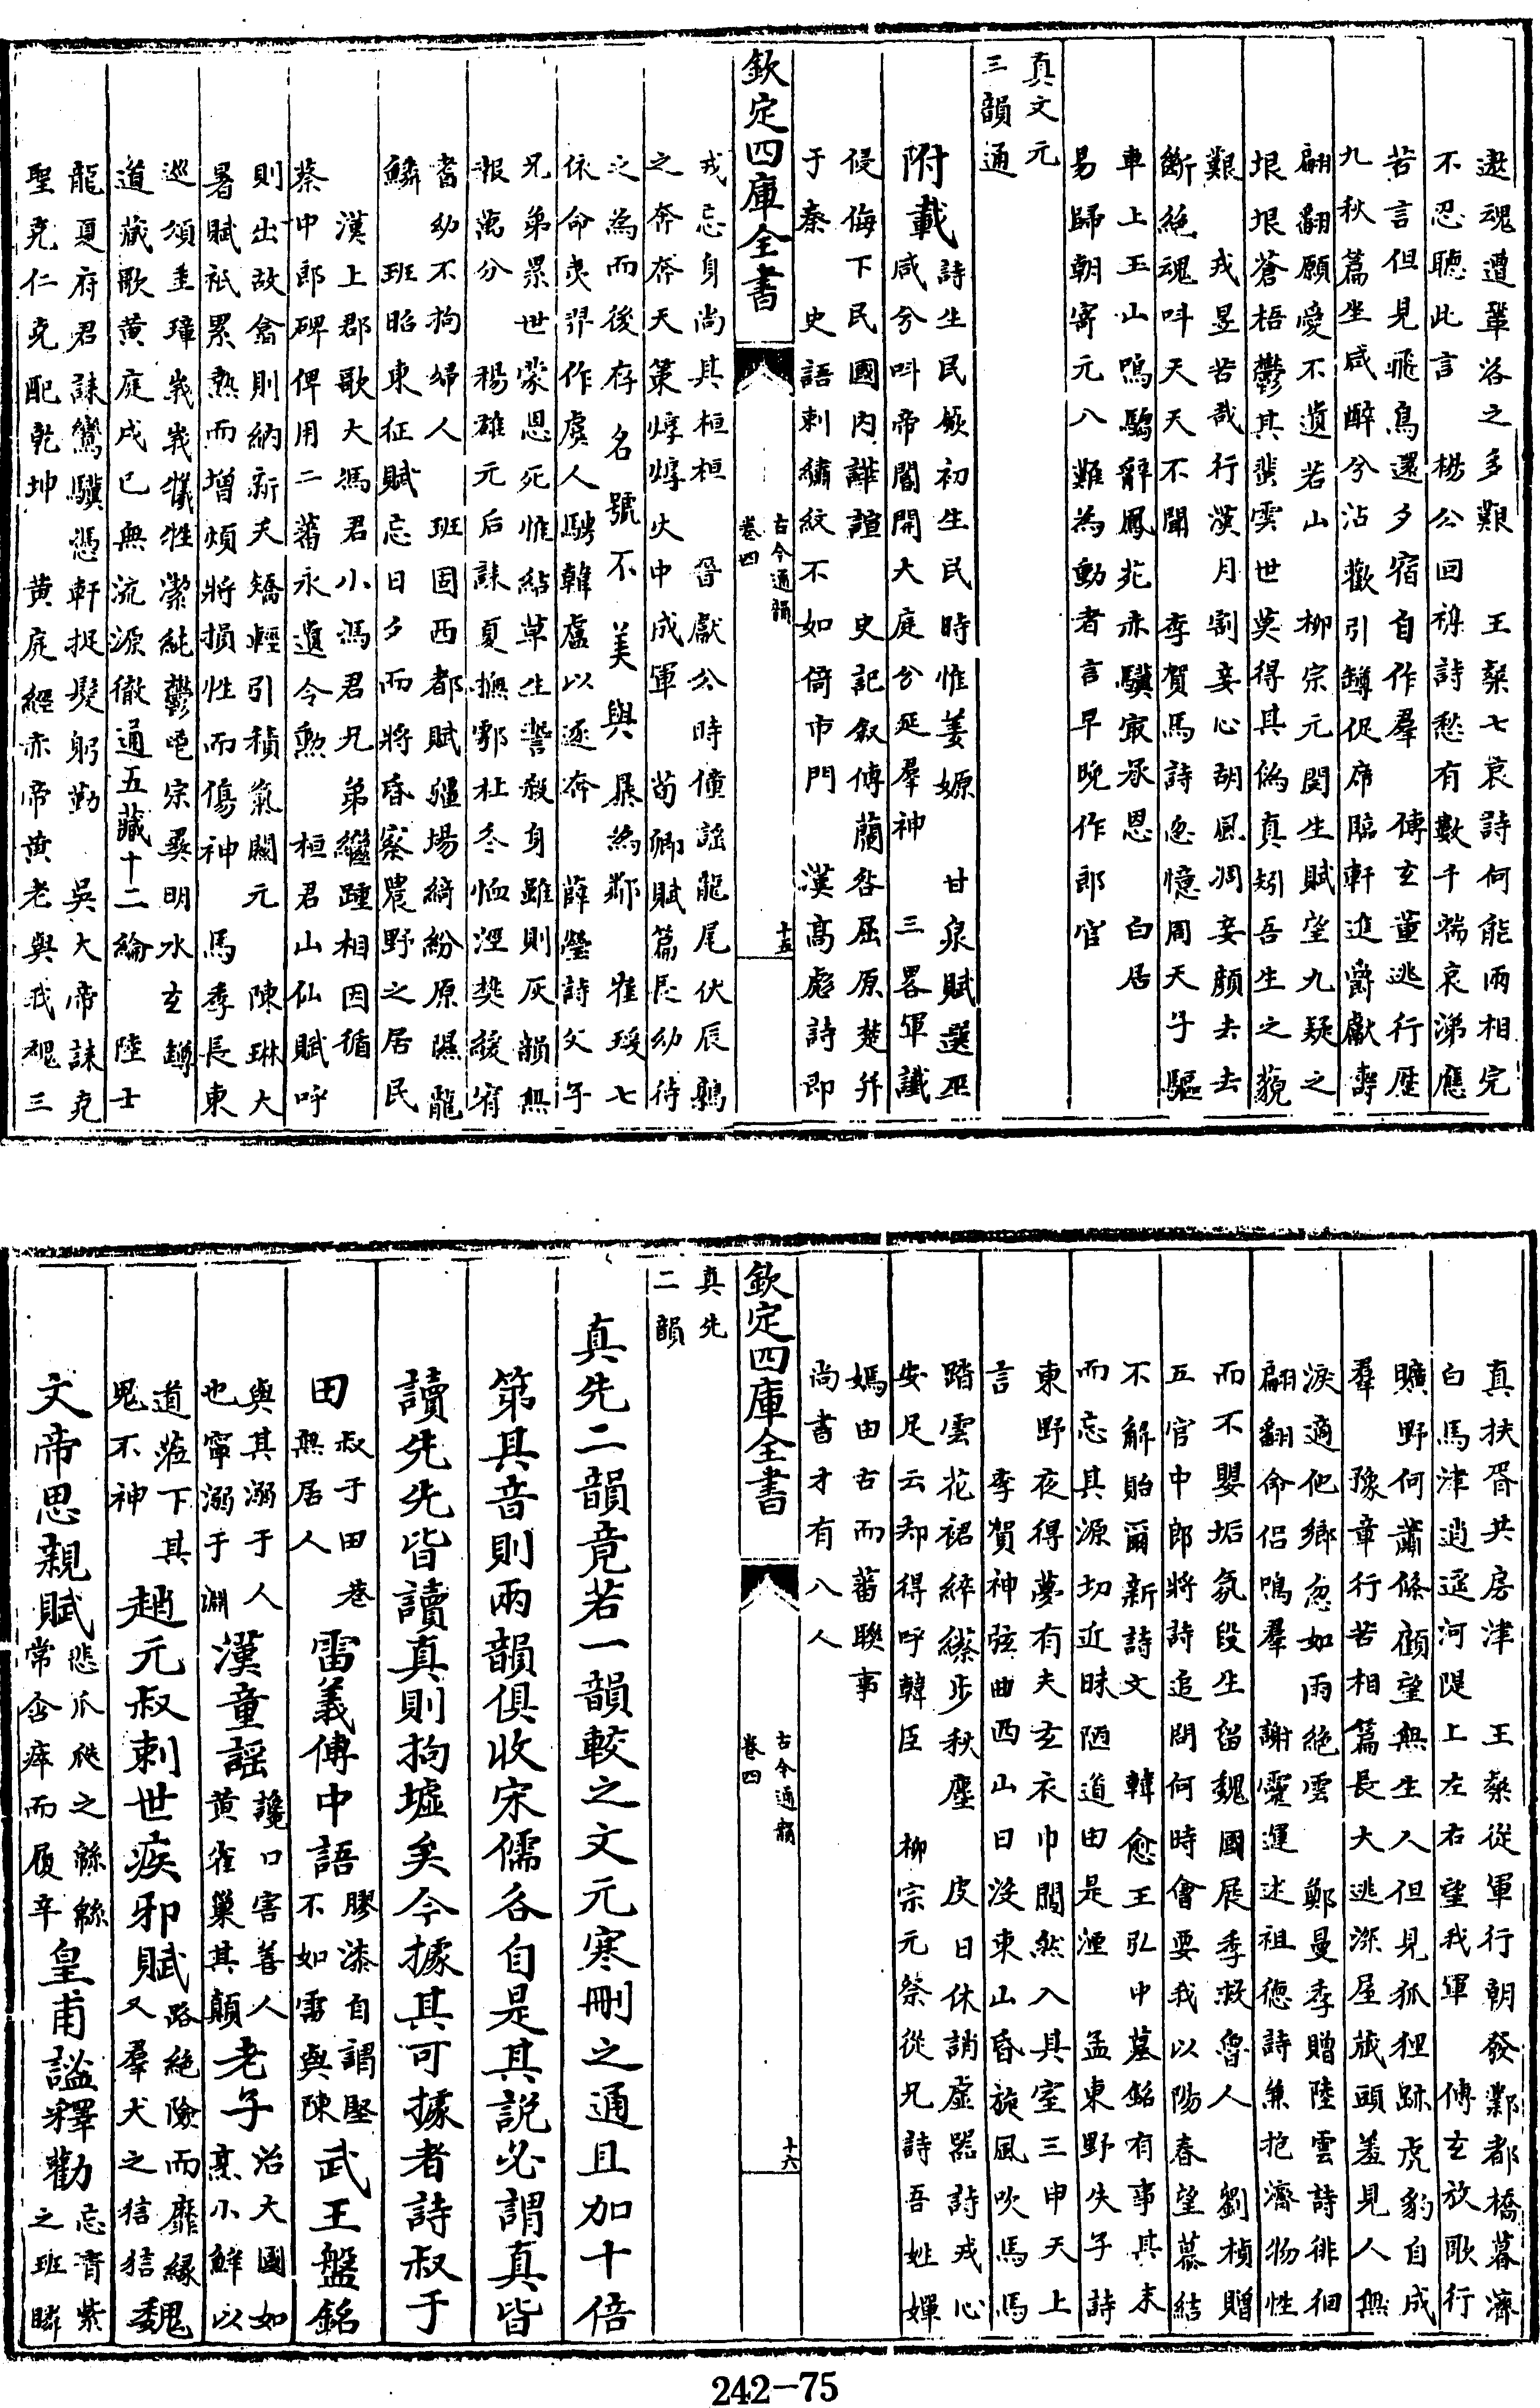 遨魂遭鞏洛之多艱　王粲七哀詩何能兩相完
不忍聽此言　楊公回補詩愁有數千端哀涕應
苦言但見飛鳥還夕宿自作羣　傅玄董逃行歷
九秋篇坐咸醉兮沾歡引罇促席臨軒進爵獻壽
翩翩願愛不遺若山　柳宗元閔生賦望九疑之
垠垠蒼梧鬱其蜚雲世莫得其偽真矧吾生之藐
艱　戎昱苦哉行漢月割妾心胡風凋妾顏去去
斷絕魂呌天天不聞　李賀馬詩忽憶周天子驅
車上玉山鳴騶辭鳳苑赤驥㝡承恩　白居
易歸朝寄元八難為動者言早晚作郎官
真文元
三韻通
附載詩生民厥初生民時惟姜嫄　甘泉賦選巫
咸兮呌帝閽開大庭兮延羣神　三畧軍讖
侵侮下民國內譁諠　史記叙傳蘭咎屈原楚并
于秦　史語刺繡紋不如倚市門　漢高彪詩即
欽定四庫全書
古今通韻
卷四
十五
戎忘身尚其桓桓　晉獻公時僮謡龍尾伏辰鶉
之奔奔天策焞焞火中成軍　荀卿賦篇長幼待
之為而後存名號不美與暴為鄰　崔瑗七
依命夷羿作虞人騁韓盧以逐奔　薛瑩詩父子
兄弟累世蒙恩死惟結草生誓殺身雖則灰韻無
報萬分　楊雄元后誄夏撫鄠杜冬恤涇樊緩宥
耆幼不拘婦人　班固西都賦疆場綺紛原隰龍
鱗　班昭東征賦忘日夕而將昏察農野之居民
漢上郡歌大馮君小馮君兄弟繼踵相因循
蔡中郎碑俾用二蕃永遺令勲　桓君山仙賦呼
則出故翕則納新夭矯輕引積氣關元　陳琳大
暑賦袛累熱而增煩將損性而傷神　馬季長東
巡頌圭璋峩峩犧牲潔純鬱鬯宗彛明水玄罇
道藏歌黃庭戊已無流源徹通五藏十二綸　陸士
龍夏府君誄鸞驥憑軒捉髮躬勤　吳大帝誄克
聖克仁克配乾坤　黃庭經赤帝黃老與我魂三
真扶胥共房津　王粲從軍行朝發鄴都橋暮濟
白馬津逍遥河隄上左右望我軍　傅玄放歌行
曠野何蕭條顧望無生人但見狐狸跡虎豹自成
羣　豫章行苦相篇長大逃深屋藏頭羞見人無
淚適他鄉忽如雨絕雲　鄭曼季贈陸雲詩徘徊
翩翻命侣鳴羣　謝靈運述祖德詩兼抱濟物性
而不嬰垢氛段生留魏國展季救魯人　劉楨贈
五官中郎將詩追問何時會要我以陽春望慕結
不解貽爾新詩文　韓愈王弘中墓銘有事其末
而忘其源切近昧陋道由是湮　孟東野失子詩
東野夜得夢有夫玄衣巾闖然入其室三申天上
言　李賀神弦曲西山日沒東山昏旋風吹馬馬
踏雲花裙綷縩步秋塵　皮日休誚虛器詩戎心
安足云却得呼韓臣　柳宗元祭從兄詩吾姓嬋
嫣由古而蕃聯事
尚書才有八人
欽定四庫全書
古今通韻
卷四
十六
真先
二韻
真先二韻竟若一韻較之文元寒刪之通且加十倍
第其音則兩韻俱收宋儒各自是其説必謂真皆
讀先先皆讀真則拘墟矣今據其可據者詩叔于
田叔于田巷
無居人
雷義傳中語膠漆自謂堅
不如雷與陳
武王盤銘
與其溺于人
也寧溺于淵
漢童謡讒口害善人
黃雀巢其顛
老子治大國如
烹小鮮以
道蒞下其
鬼不神
趙元叔刺世疾邪賦路絕險而靡緣
又羣犬之狺狺
魏
文帝思親賦悲爪㼐之緜緜
常含瘁而履辛
皇甫謐釋勸忘青紫
之班瞵
242-75